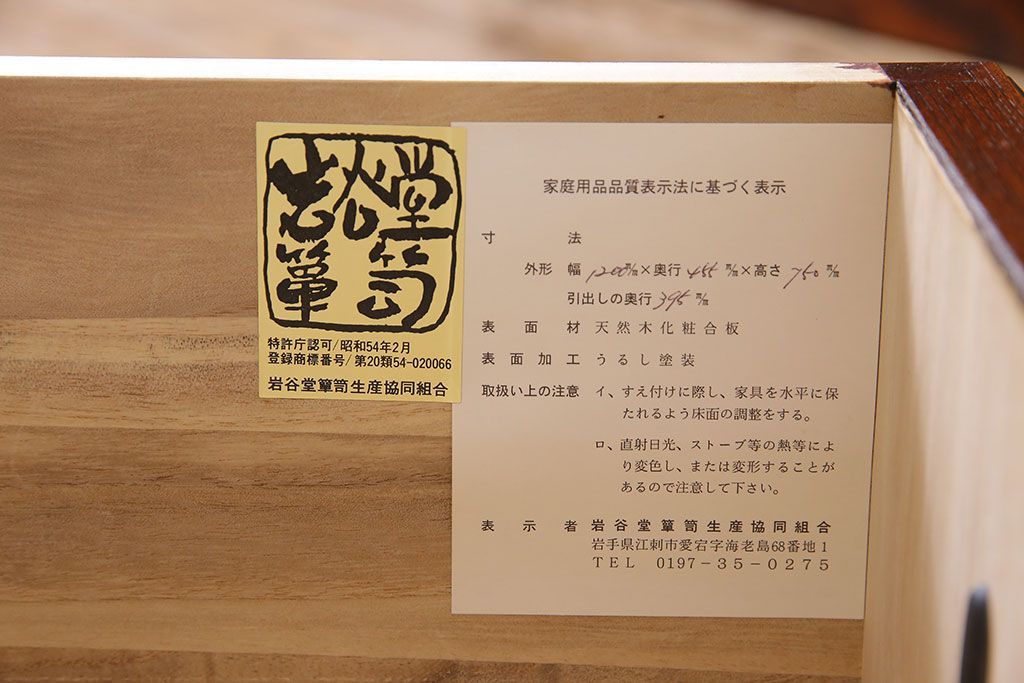 岩谷堂
簞笥
特許庁認可/昭和54年2月
登録商標番号/第20類54-020066
岩谷堂簞笥生産協同組合
家庭用品品質表示法に基づく表示
寸法
外形 幅 1200㎜×奥行 455 ㎜×高さ 750 ㎜
引出しの奥行 395 ㎜
表面材 天然木化粧合板
表面加工 うるし塗装
取扱い上の注意 イ、すえ付けに際し、家具を水平に保
たれるよう床面の調整をする。
ロ、直射日光、ストーブ等の熱等によ
り変色し、または変形することが
あるので注意して下さい。
表示者 岩谷堂簞笥生産協同組合
岩手県江刺市愛宕字海老島68番地1
TEL 0197-35-0275